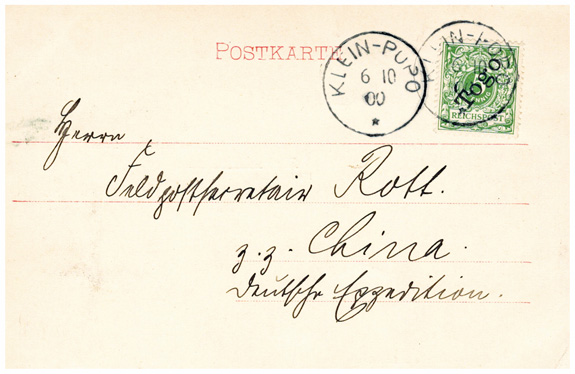 POSTKARTE
KLEIN-POPO
6 10
00
*
KLEIN-POPO
6 10
Togo
REICHSPOST
Herrn
Feldpostsecretair Rott.
z. Z. China.
Deutsche Expedition.